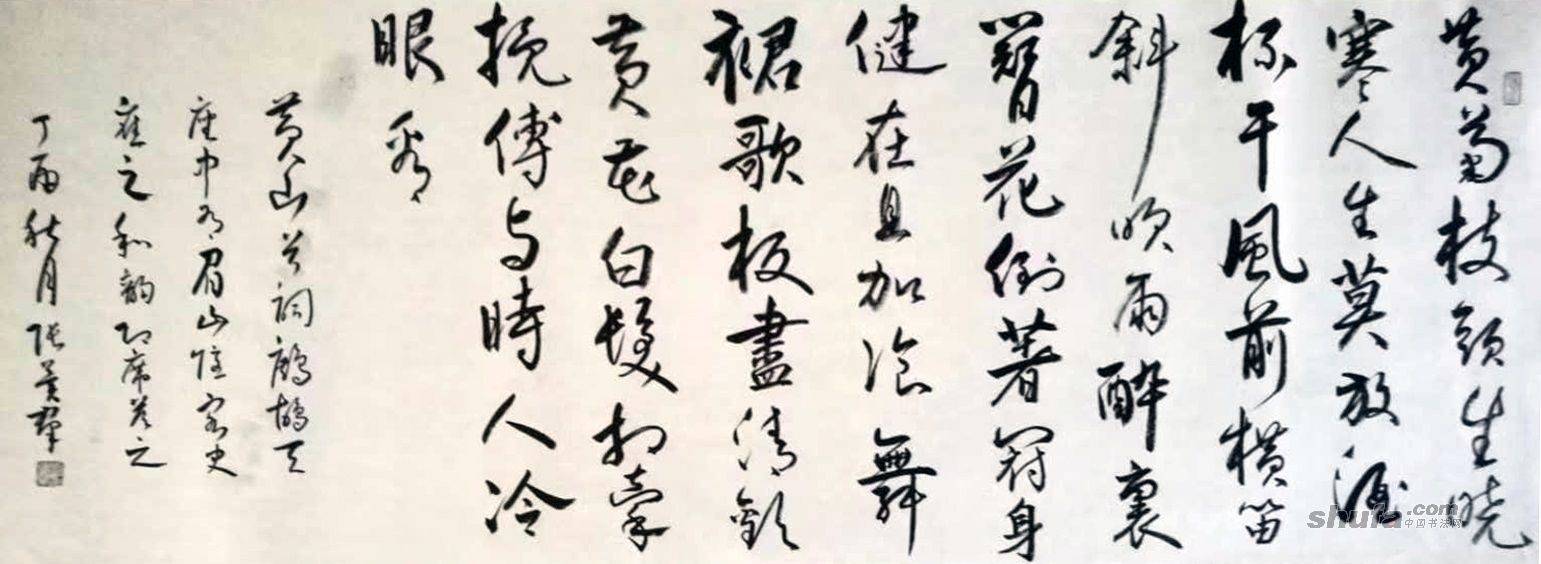 黄菊枝頭生曉
寒人生莫放酒
杯干風前横笛
斜吹雨醉裏
簪花倒著冠身
健在且加飡舞
裙歌板盡清歡
黄花白髮相牽
挽傅与時人冷
眼看
黄山谷词鷓鴣天
座中有眉山隐客史
應之和韵即席答之
丁酉秋月張
shufa.com
中国书法网